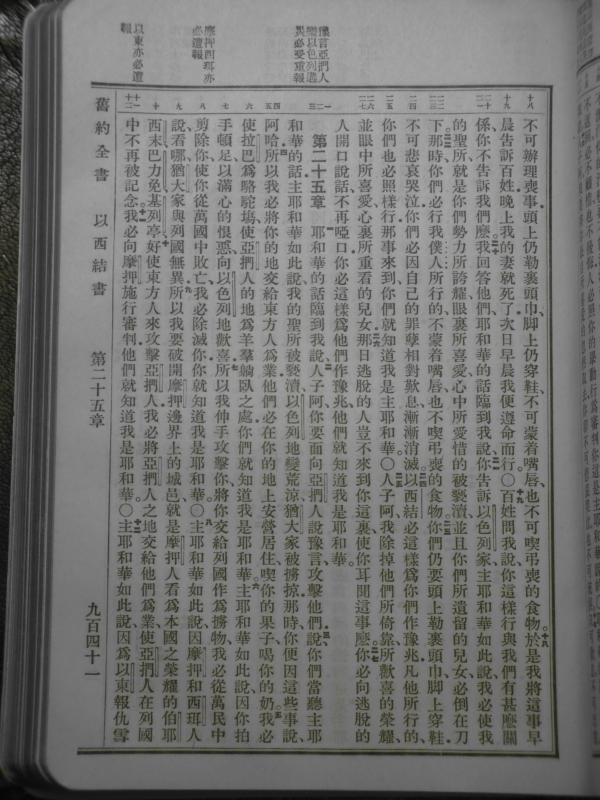 豫言亞捫人
譏以色列遇
異必受重報
摩押西珥亦
必遭報
以東亦必遭
報
不可辦理喪事頭上仍勒裹頭巾、脚上仍穿鞋、不可蒙着嘴唇、也不可喫弔喪的食物。於是我將這事早
晨告訴百姓、晚上我的妻就死了、次日早晨我便遵命而行。○百姓問我說、你這樣行與我們有甚麼關
係、你不告訴我們麼。我回答他們、耶和華的話臨到我說、你告訴以色列家、主耶和華如此說、我必使我
的聖所、就是你們勢力所誇耀、眼裏所喜愛、心中所愛惜的被褻瀆、並且你們所遺留的兒女、必倒在刀
下。那時你們必行我僕人所行的、不蒙着嘴唇、也不喫弔喪的食物。你們仍要頭上勒裹頭巾、脚上穿鞋、
不可悲哀哭泣、你們必因自己的罪孽相對歎息、漸漸消滅。以西結必這樣爲你們作豫兆、凡他所行的、
你們也必照樣行、那事來到、你們就知道我是主耶和華。○人子阿、我除掉他們所倚靠所歡喜的榮耀、
並眼中所喜愛心裏所重看的兒女、那日逃脫的人豈不來到你這裏、使你耳聞這事麼。你必向逃脫的
人開口說話、不再啞口、你必這樣爲他們作豫兆、他們就知道我是耶和華。
第二十五章 耶和華的話臨到我說、人子阿、你要面向亞捫人說豫言、攻擊他們、說、你們當聽主耶
和華的話、主耶和華如此說、我的聖所被褻瀆、以色列地變荒涼、猶大家被擄掠、那時、你便因這些事說、
阿哈、所以我必將你的地交給東方人爲業、他們必在你的地上安營居住、喫你的果子、喝你的奶。我必
使拉巴爲駱駝塲、使亞捫人的地爲羊羣躺臥之處、你們就知道我是耶和華。主耶和華如此說、因你拍
手頓足、以滿心的恨惡向以色列地歡喜、所以我伸手攻擊你、將你交給列國作爲擄物、我必從萬民中
剪除你、使你從萬國中敗亡、我必除滅你、你就知道我是耶和華。○主耶和華如此說、因摩押和西珥人
說、看哪、猶大家與列國無異、所以我要破開摩押邊界上的城邑、就是摩押人看爲本國之榮耀的伯耶
西末、巴力免、基列亭、好使東方人來攻擊亞捫人、我必將亞捫人之地交給他們爲業、使亞捫人在列國
中不再被記念。我必向摩押施行審判、他們就知道我是耶和華。○主耶和華如此說、因爲以東報仇雪
舊約全書 以西結書 第二十五章 九百四十一